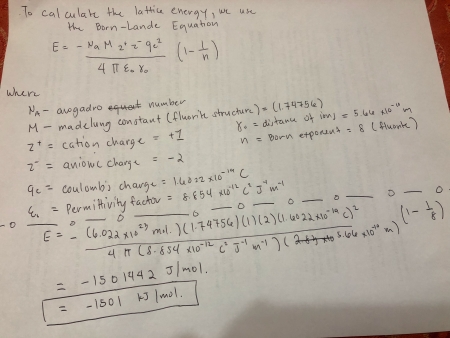 To calculate the lattice energy, we use
the Born-Lande Equation
E = - NA M z⁺ z⁻ qe² / 4 π ε₀ r₀ (1 - 1/n)
where
NA - avogadro number
M - madelung constant (fluorite structure) = (1.74756)
z⁺ = cation charge = +1
z⁻ = anionic charge = -2
qe = coulomb's charge = 1.6022 x10⁻¹⁹ C
ε₀ = Permittivity factor = 8.854 x10⁻¹² C² J⁻¹ m⁻¹
r₀ = distance of ions = 5.66 x10⁻¹⁰ m
n = Born exponent = 8 (fluorite)
E = - (6.022 x10²³ mol.)(1.74756)(1)(2)(1.6022 x10⁻¹⁹ C)² / 4 π (8.854 x10⁻¹² C² J⁻¹ m⁻¹)(5.66 x10⁻¹⁰ m) (1 - 1/8)
= -1501442 J/mol.
= -1501 kJ/mol.